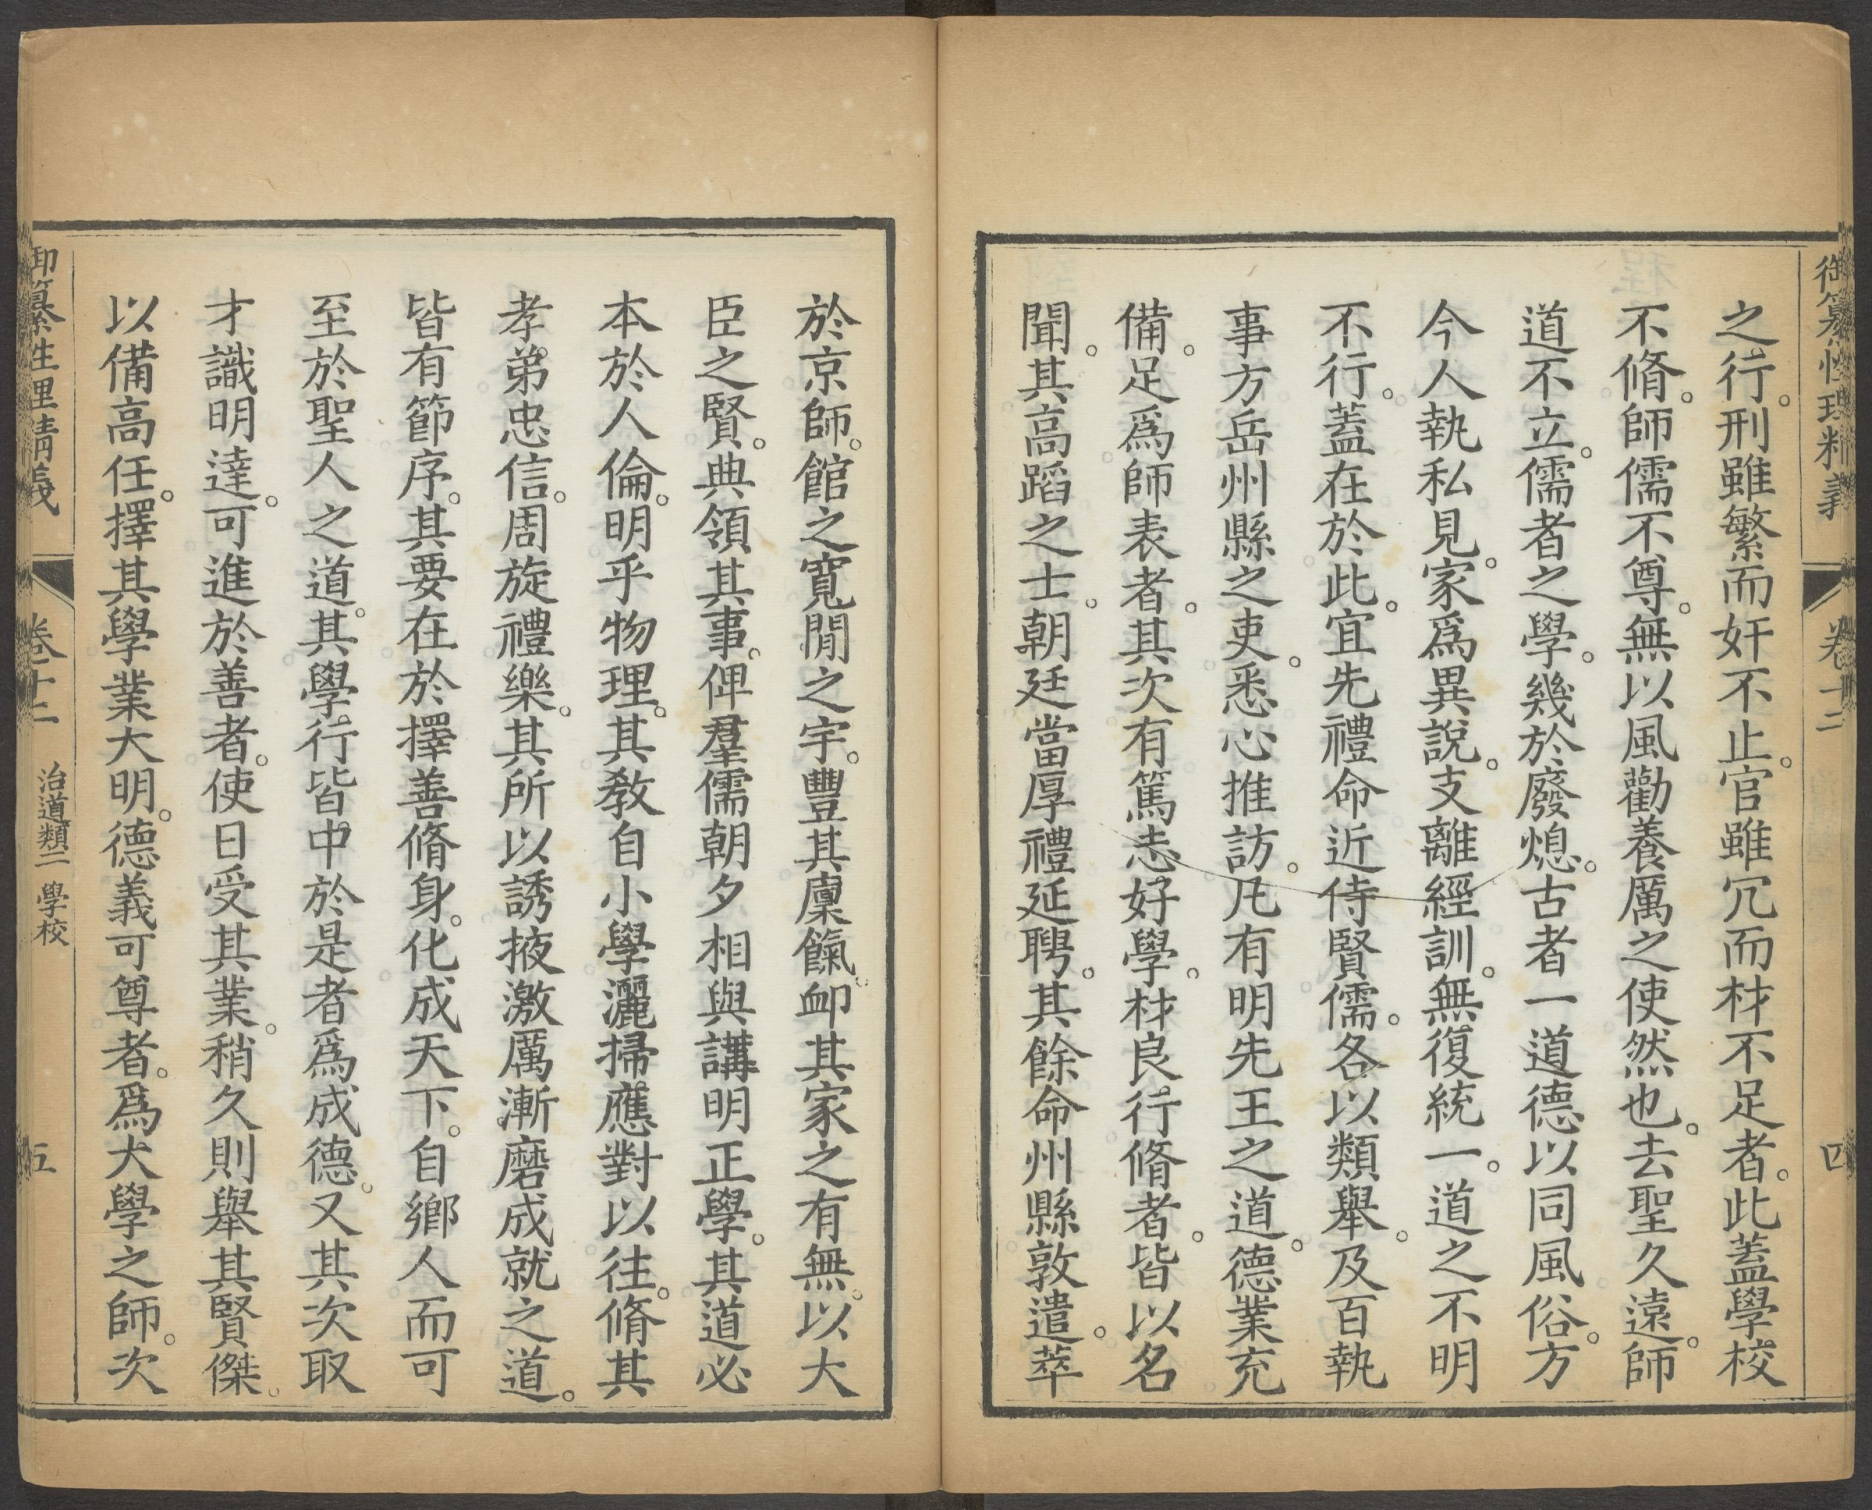 御纂性理精義 卷十二 四
之行。刑雖繁而奸不止。官雖冗而材不足者。此蓋學校
不脩。師儒不尊。無以風勸養厲之使然也。去聖久遠。師
道不立。儒者之學。幾於廢熄。古者一道德以同風俗。方
今人執私見。家爲異說。支離經訓。無復統一。道之不明
不行。蓋在於此。宜先禮命近侍賢儒。各以類舉。及百執
事方岳州縣之吏。悉心推訪。凡有明先王之道。德業充
備。足爲師表者。其次有篤志好學。材良行脩者。皆以名
聞。其高蹈之士。朝廷當厚禮延聘。其餘命州縣敦遣。萃
於京師。館之寬閒之宇。豐其廩餼。卹其家之有無。以大
臣之賢。典領其事。俾羣儒朝夕相與講明正學。其道必
本於人倫。明乎物理。其敎自小學灑掃應對以往。脩其
孝弟忠信。周旋禮樂。其所以誘掖激厲漸磨成就之道。
皆有節序。其要在於擇善脩身。化成天下。自鄉人而可
至於聖人之道。其學行皆中於是者爲成德。又其次取
才識明達。可進於善者。使日受其業。稍久則舉其賢傑。
以備高任。擇其學業大明。德義可尊者。爲大學之師。次
御纂性理精義 卷十二 治道類二 學校 五